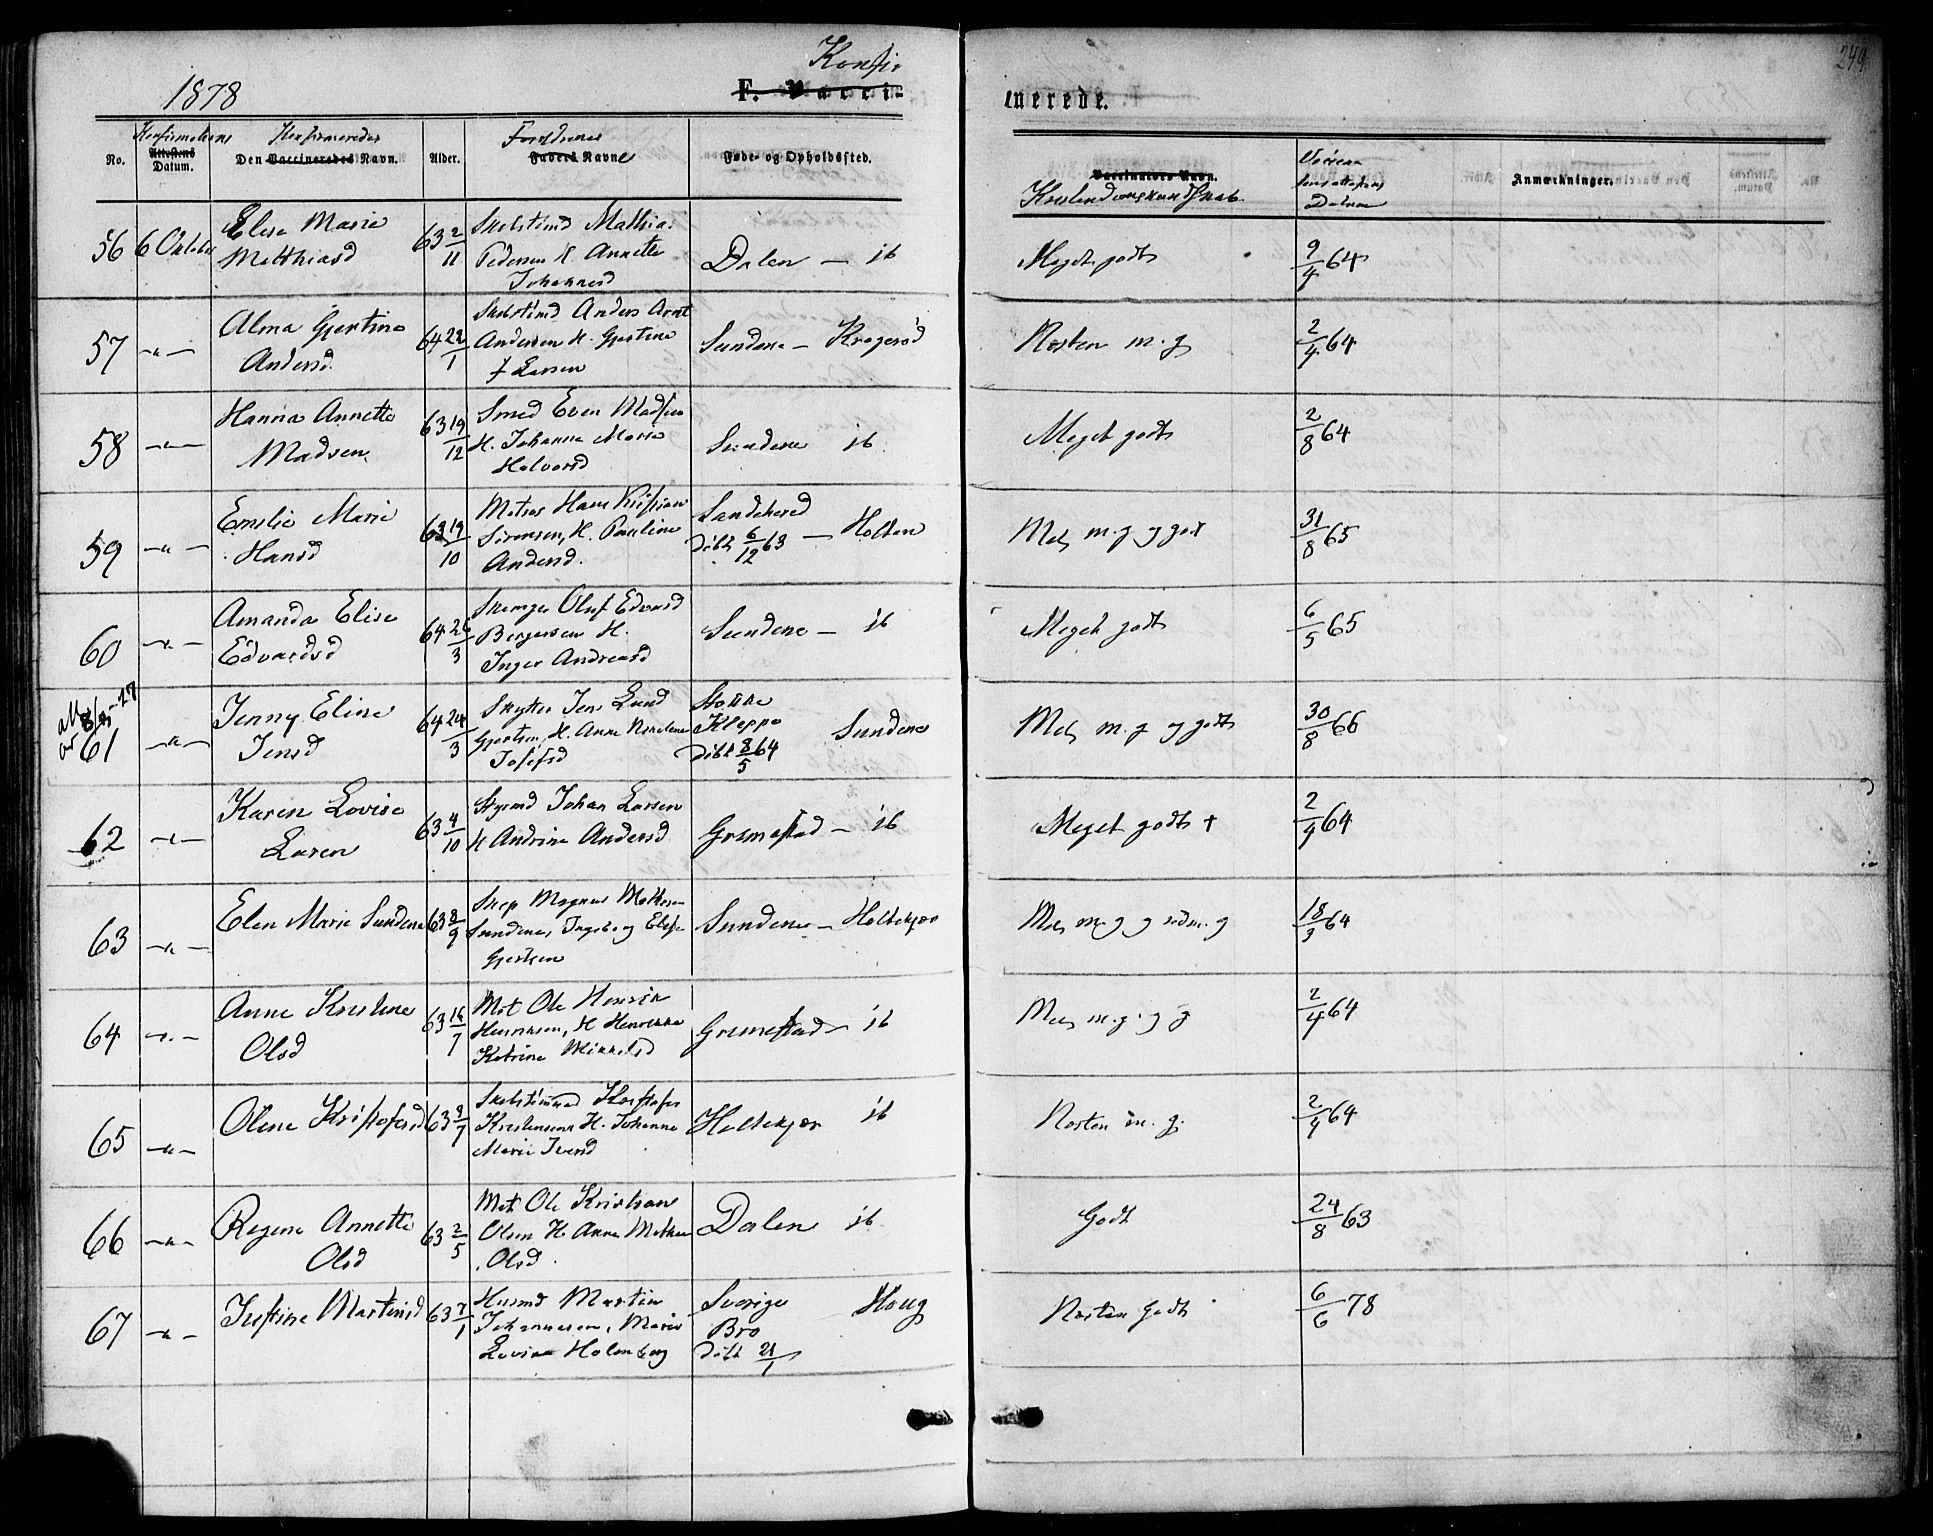 1878
Konfir
F. Vacci-
nerede.
249
No.
Konfirmations
Attestens
Datum.
Konfirmeredes
Den Vaccineredes Navn.
Alder.
Forældrenes
Faders Navne
Føde- og Opholdssted.
Vaccinators Navn.
Kristendomskundskab.
Datum
Anmærkninger.
56 6 Oktober
Elise Marie
Matthiasd
63 2/11
Mathias
Pedersen H Annette
Johannesd
Dalen — ib
Meget godt
9/4 64
57 —"—
Alma Gjertine
Andersd.
64 22/1
Anders Arnt
Andersen H. Gjertine
f Larsen
Sundene — Kragerød
Næsten m. g
2/4 64
58 —"—
Hanna Annette
Madsen
63 19/12
Smed Even Madsen
H. Johanne Marie
Halvorsd
Sundene ib
Meget godt
2/8 64
59 —"—
Emilie Marie
Hansd
63 19/10
Matros Hans Kristian
Sørensen, H. Pauline
Andersd.
Sandeherred
døbt 6/12 63 — Holten
Mel. m. g og godt
31/8 65
60 —"—
Amanda Elise
Edvardsd
64 26/3
Oluf Edvard
Bergersen H.
Inger Andreasd
Sundene — ib
Meget godt
6/5 65
61 —"—
Jenny Eline
Jensd
64 24/3
Jens Lund
Gjertsen, H. Anne
Josefsd
Stokke
Kleppo
døbt 8/5 64
Sundene
Mel. m. g og godt
30/8 66
62 —"—
Karen Lovise
Larsen
63 4/10
Styrmd Johan Larsen
H Andrine Andersd
Grimestad — ib
Meget godt +
2/4 64
63 —"—
Elen Marie Sundene
63 8/9
Skep Magnus Mathisen
Sundene, Ingeborg Elise
Gjertsen
Sundene — Holtekjær
18/3 64
64 —"—
Anne Kristine
Olsd
63 16/7
Mat Ole Henrik
Henriksen, H Henrikka
Katrine Mikkelsd
Grimestad — ib
Mel. m. g. og g
2/4 64
65 —"—
Oline Kristofersd
63 9/7
Kristofer
Kristensen H. Johanne
Marie Iversd
Holtekjær ib
Næsten m. g.
2/4 64
66 —"—
Regine Annette
Olsd
63 2/5
Mat Ole Kristian
Olsen H Anne Mathea
Olsd.
Dalen ib
Godt
24/8 63
67 —"—
Justine Martinsd
63 7/1
Husmd Martin
Johannesen, Marie
Lovise Holmberg
Sverige
Bro
døbt 21/1
Houg
Næsten Godt
6/6 78